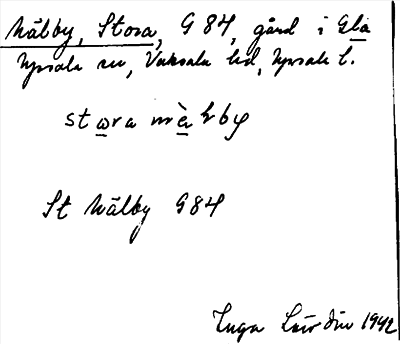 Mälby, Stora, G 84, gård i Gla
Uppsala sn, Vaksala hd, Uppsala l.
stora mälby
St Mälby G84
Inga 1942